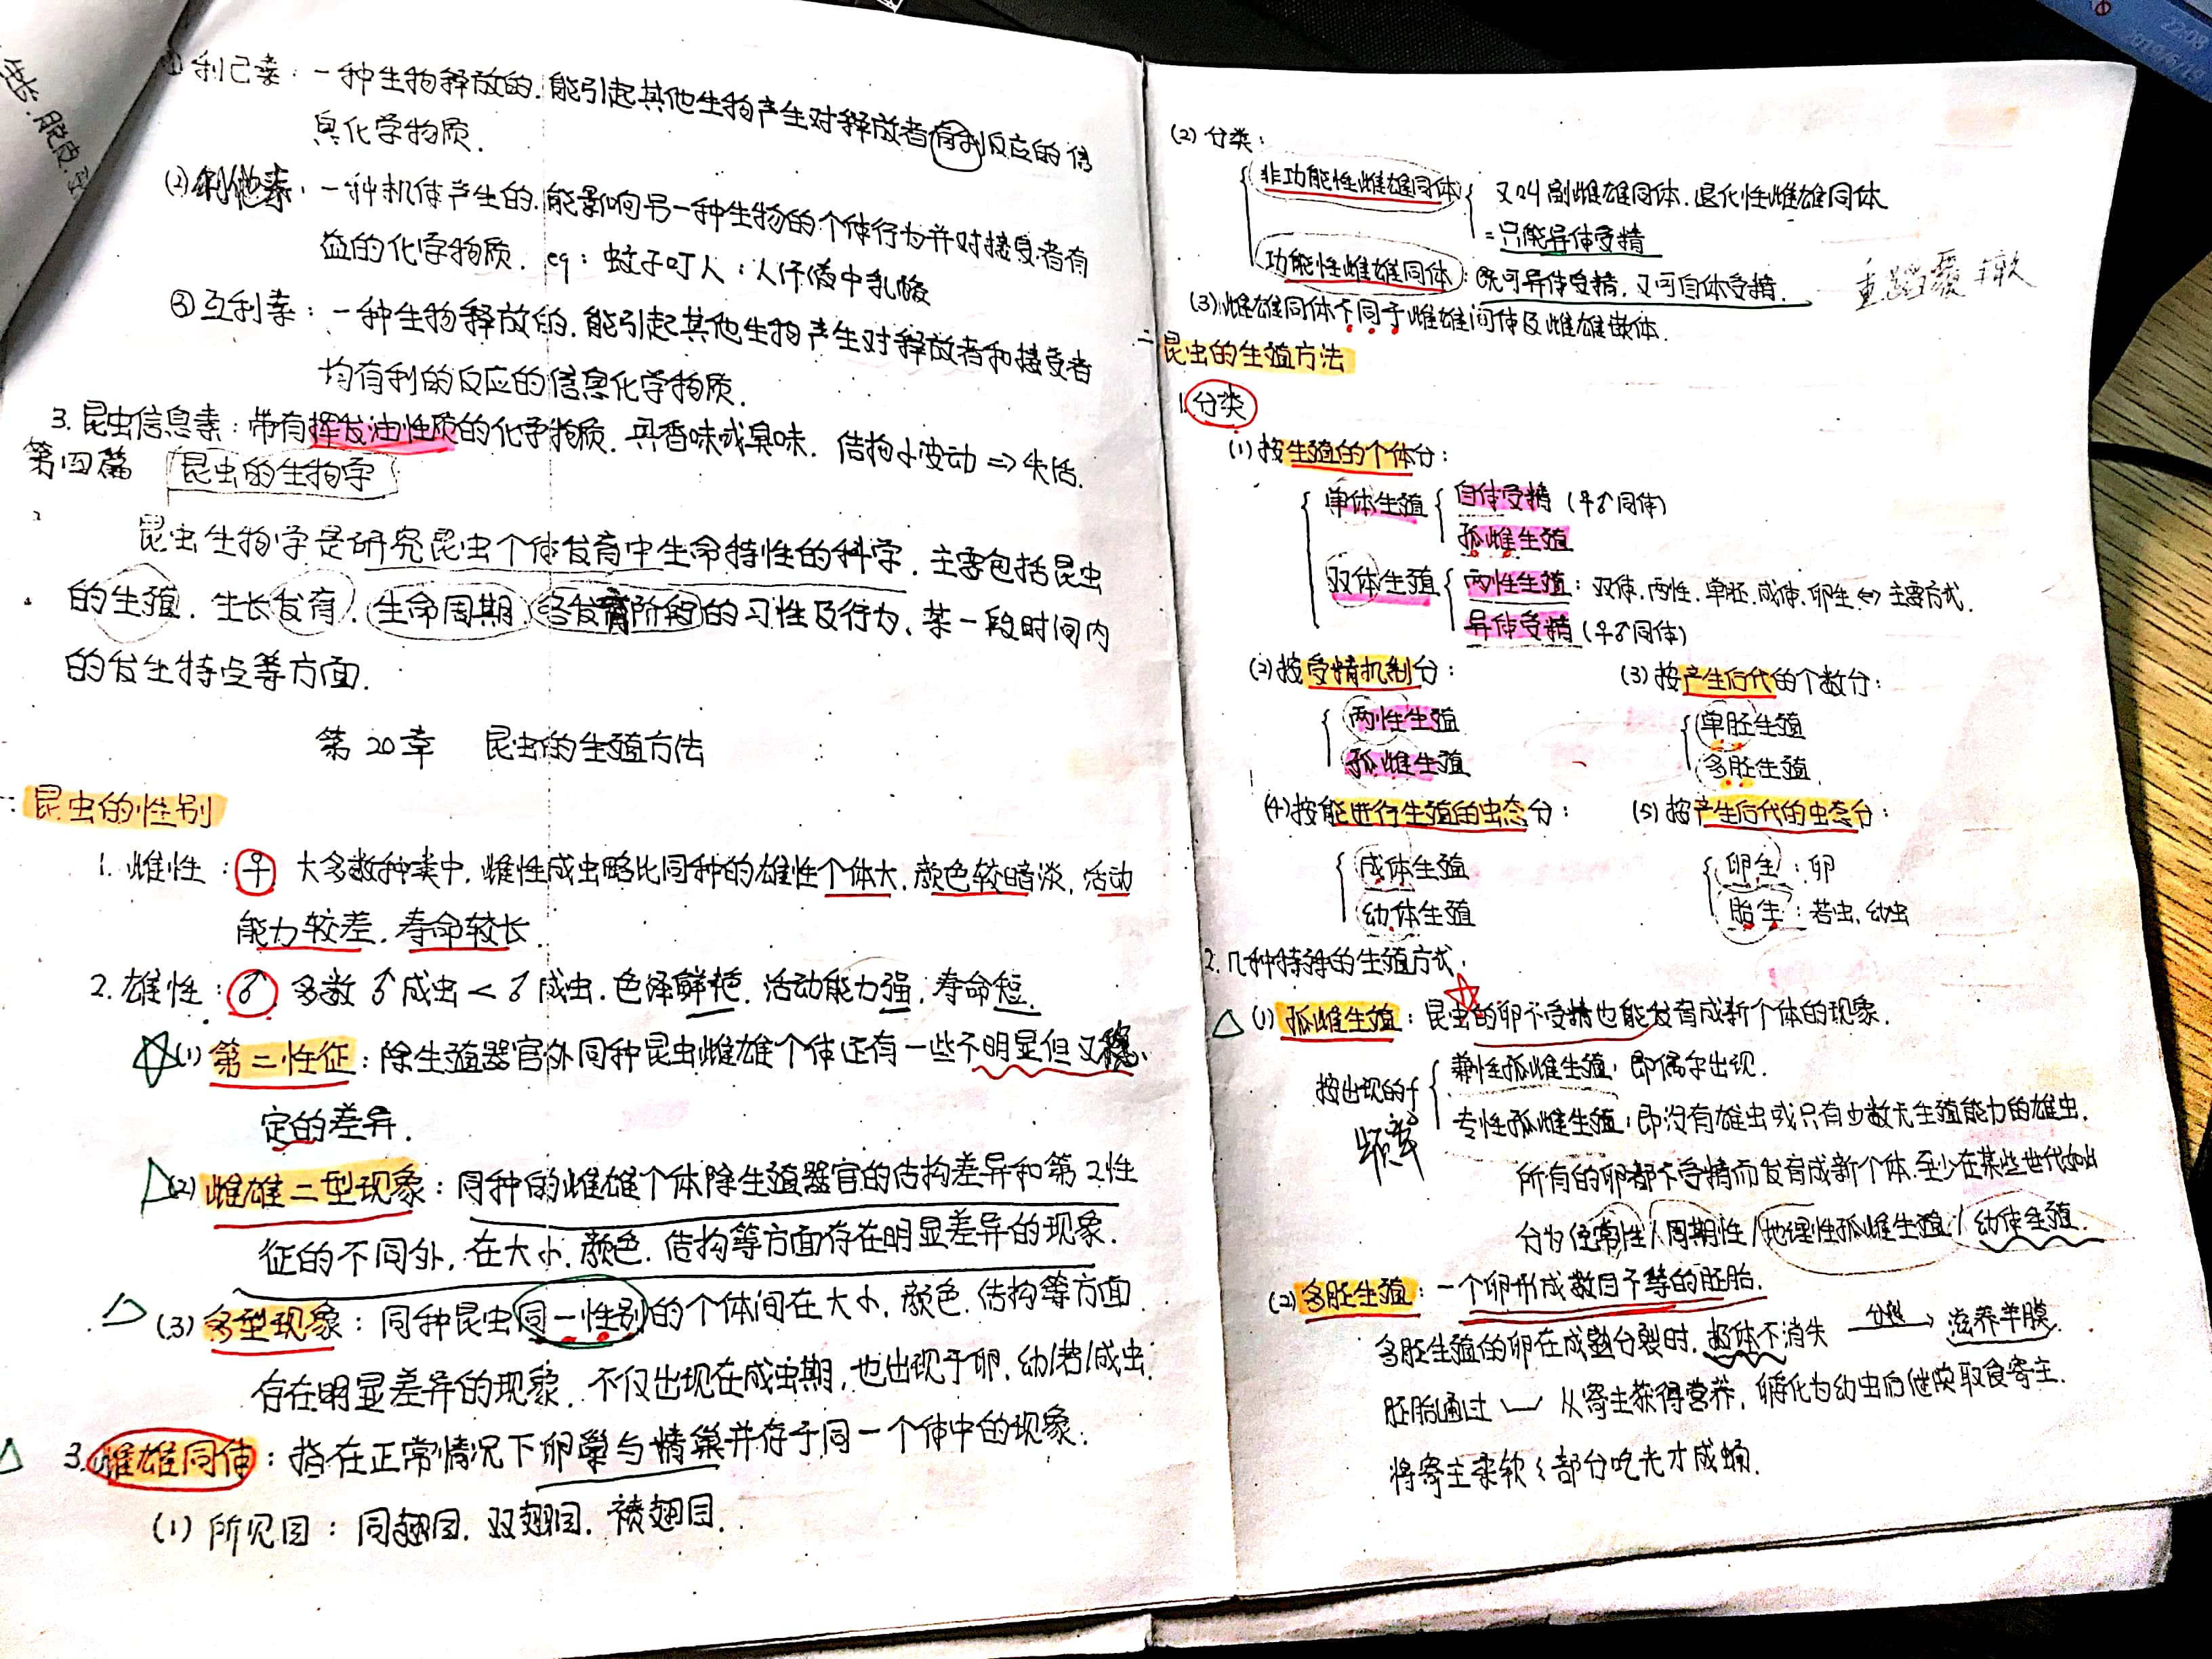 ① 利己素：一种生物释放的.能引起其他生物产生对释放者有利反应的信
息化学物质.
(2)利他素：一种机体产生的.能影响另一种生物的个体行为并对接受者有
益的化学物质. eg：蚊子叮人：人汗液中乳酸
③ 互利素：一种生物释放的.能引起其他生物产生对释放者和接受者
均有利的反应的信息化学物质.
3. 昆虫信息素：带有挥发油性质的化学物质.具香味或臭味. 结构小变动 => 失活.
第四篇 昆虫的生物学
昆虫生物学是研究昆虫个体发育中生命特性的科学.主要包括昆虫
的生殖.生长发育.生命周期.各发育阶段的习性及行为、某一段时间内
的发生特点等方面.
第20章 昆虫的生殖方法
一.昆虫的性别
1. 雌性：♀ 大多数种类中,雌性成虫略比同种的雄性个体大.颜色较暗淡,活动
能力较差.寿命较长.
2. 雄性：♂ 多数♂成虫<♂成虫.色泽鲜艳.活动能力强,寿命短.
(1) 第二性征：除生殖器官外同种昆虫雌雄个体还有一些不明显但又稳
定的差异.
(2) 雌雄二型现象：同种的雌雄个体除生殖器官的结构差异和第2性
征的不同外,在大小.颜色.结构等方面存在明显差异的现象.
(3) 多型现象：同种昆虫同一性别的个体间在大小.颜色.结构等方面
存在明显差异的现象.不仅出现在成虫期,也出现于卵.幼/若/成虫.
3. 雌雄同体：指在正常情况下卵巢与精巢并存于同一个体中的现象.
(1) 所见目：同翅目.双翅目.䙆翅目.
(2) 分类：
非功能性雌雄同体 又叫副雌雄同体.退化性雌雄同体
=只能异体受精
功能性雌雄同体：既可异体受精,又可自体受精.
重蹈覆辙
(3) 雌雄同体不同于雌雄间体及雌雄嵌体.
二 昆虫的生殖方法
1. 分类
(1) 按生殖的个体分：
单体生殖 自体受精 (♀♂同体)
孤雌生殖
双体生殖 两性生殖：双体.两性.单胚.成体.卵生 <=> 主要方式.
异体受精 (♀♂同体)
(2) 按受精机制分： (3) 按产生后代的个数分：
两性生殖 单胚生殖
孤雌生殖 多胚生殖
(4) 按能进行生殖的虫态分： (5) 按产生后代的虫态分：
成体生殖 卵生：卵
幼体生殖 胎生：若虫,幼虫
2. 几种特殊的生殖方式：
(1) 孤雌生殖：昆虫的卵不受精也能发育成新个体的现象.
按出现的f 兼性孤雌生殖：即偶尔出现.
频率 专性孤雌生殖：即没有雄虫或只有少数无生殖能力的雄虫.
所有的卵都不受精而发育成新个体.至少在某些世代如此
分为经常性/周期性/地理性孤雌生殖/幼体生殖.
(2) 多胚生殖：一个卵形成数目不等的胚胎.
多胚生殖的卵在成熟分裂时.极体不消失 分裂→ 滋养羊膜.
胚胎通过 从寄主获得营养,孵化为幼虫后继续取食寄主.
将寄主柔软部分吃光才成蛹.
22:08
2019/6/19